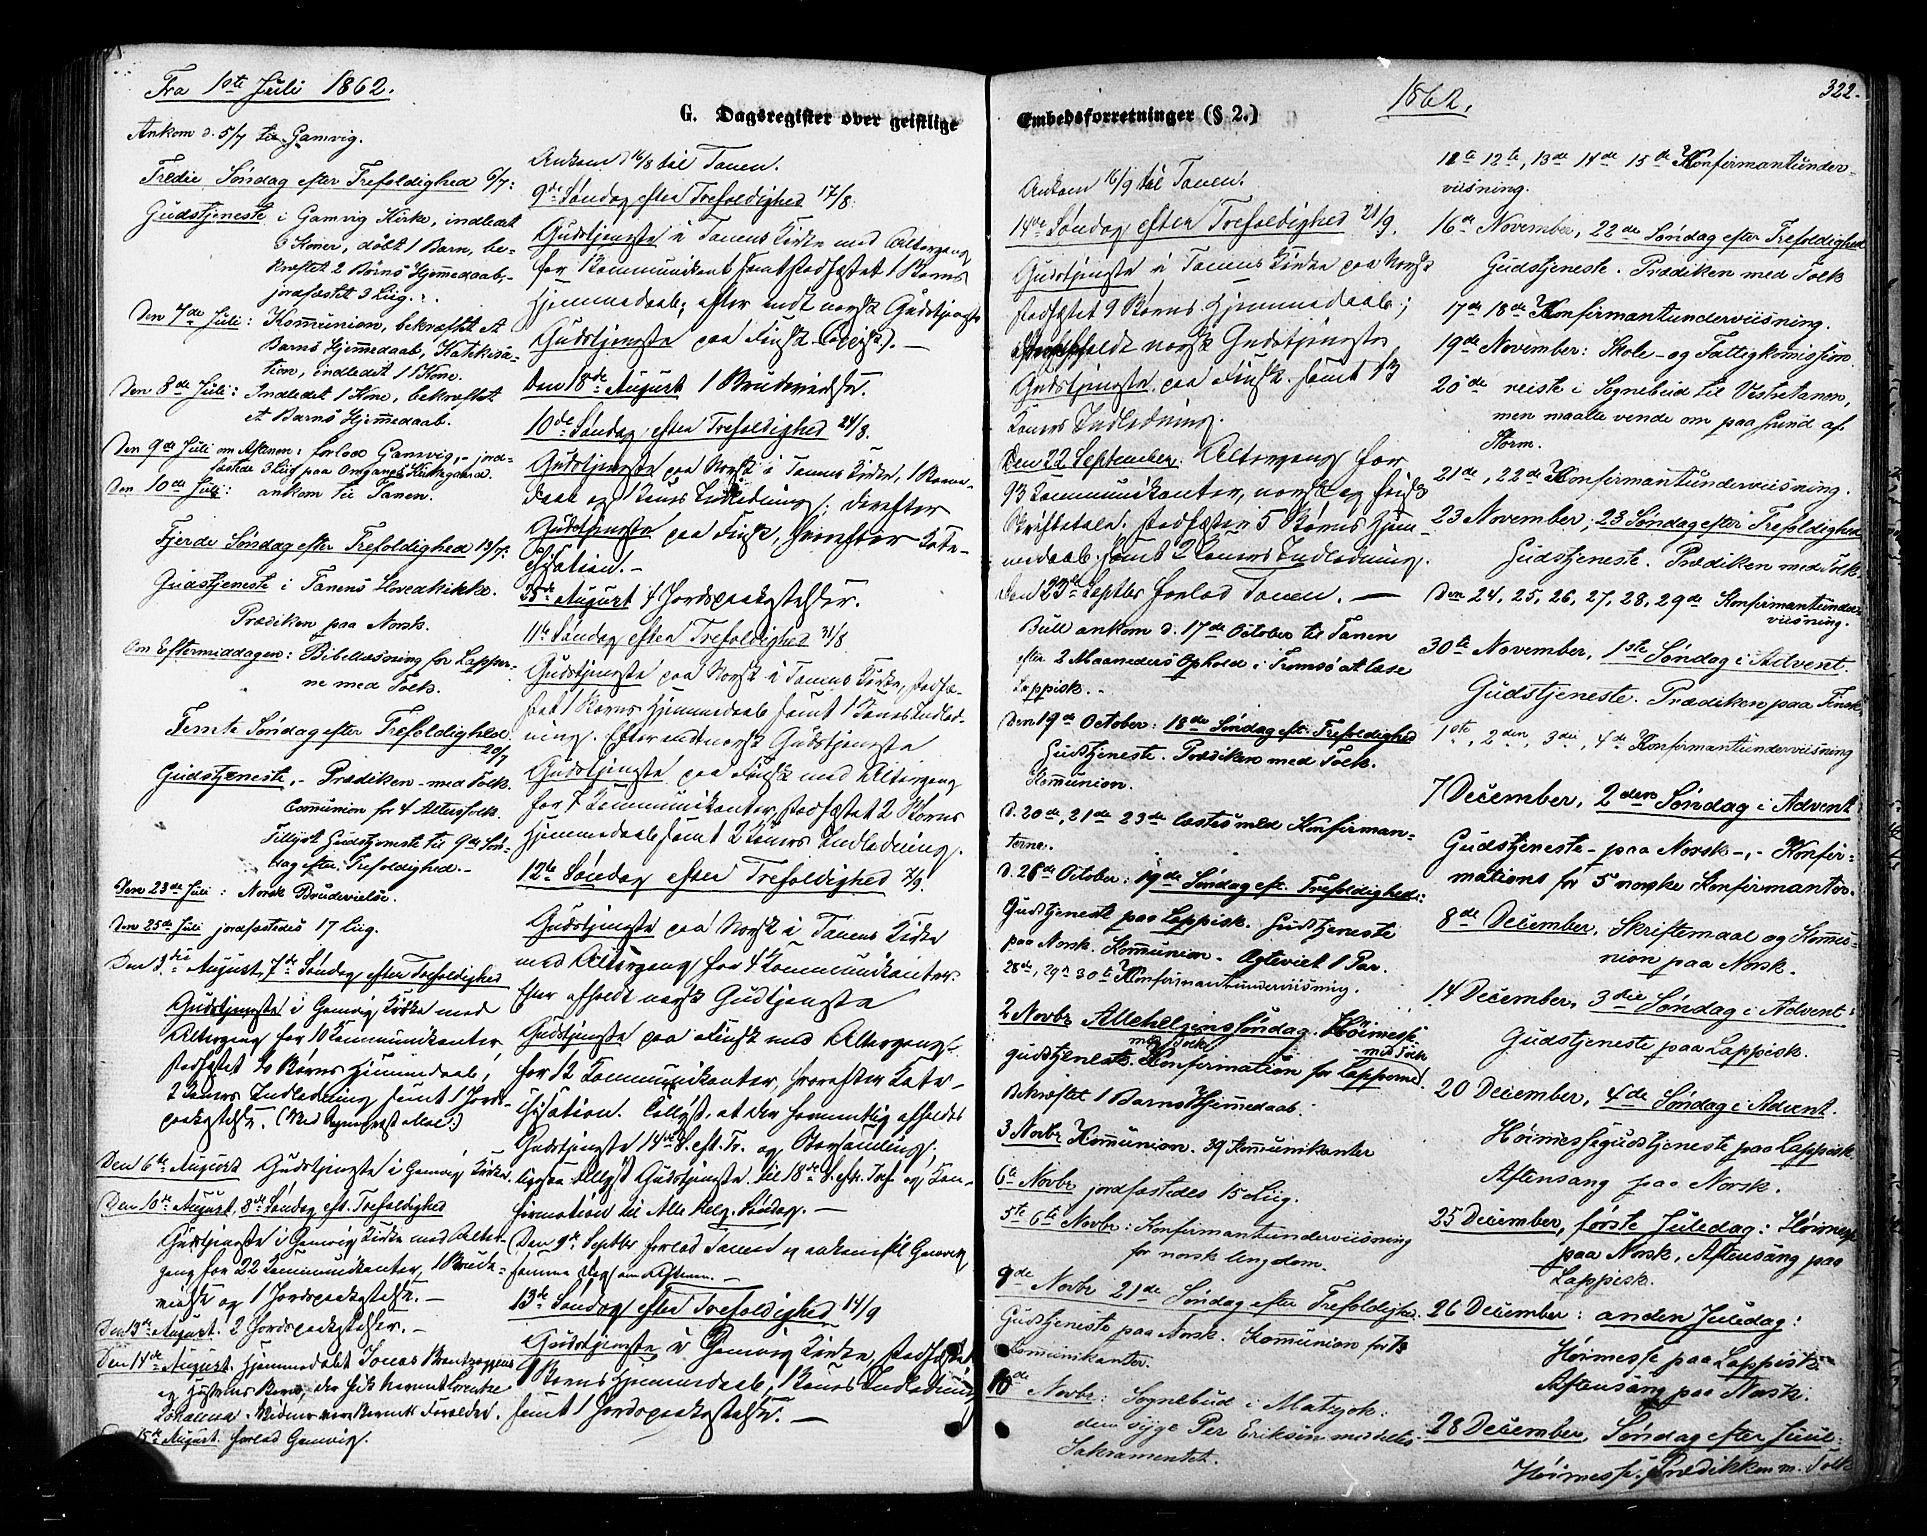 Fra 1ste Juli 1862.
G. Dagsregister over geistlige
Ankom d. 5/7 til Gamvig.
Tredie Søndag efter Trefoldighed 6/7:
Gudstjeneste i Gamvig Kirke, indledet
3 Koner, döbt 1 Barn, be-
kræftet 2 Börns Hjemedaab,
jordfæstet 3 Liig.
Den 7de Juli: Komunion, bekræftet et
Barns Hjemedaab, Katekisa-
tion, indledet 1 Kone.
Den 8de Juli: Indledet 1 Kone, bekræftet
et Barns Hjemedaab.
Den 9de Juli om Aftenen: forlod Gamvig, - jord-
fæstede 3 Liig paa Omgangs Kirkegaard.
Den 10de Juli: ankom til Tanen.
Fjerde Søndag efter Trefoldighed 13/7:
Gudstjeneste i Tanens Hovedkirke.
Prædiken paa Norsk.
Om Eftermiddagen: Bibellæsning for Lapper-
ne med Tolk.
Femte Søndag efter Trefoldighed
20/7
Gudstjeneste, - Prædiken med Tolk.
Comunion for 4 Altersfolk.
Tillyst Gudstjeneste til 9de Søn-
dag efter Trefoldighed. -
Den 23de Juli: Norsk Brudevielse.
Den 25de Juli jordfæstedes 17 Liig.
Den 3die August, 7de Søndag efter Trefoldighed
Gudstjeneste i Gamvig Kirke med
Altergang for 10 Kommunikanter,
stadfæstet Børns Hjemmedaab,
2 Koners Indledning samt 1 Jords-
paakastelse.
Den 6te August Gudstjeneste i Gamvig Kirke.
Den 10de August, 8de Søndag eft. Trefoldighed
Gudstjeneste i Gamvig Kirke med Alter-
gang for 22 Kommunikanter, 1 Brude-
vielse og 1 Jordspaakastelse. -
Den 13de August. 2 Jordspaakastelser. -
Den 14de August. Hjemmedøbt Jonas
Johanna
15de August. forlod Gamvig.
Ankom 16/8 til Tanen.
9de Søndag efter Trefoldighed 17/8.
Gudstjeneste i Tanens Kirke med Altergang
for 1 Kommunikant samt stadfæstet 1 Barns
Hjemmedaab; efter endt norsk Gudstjeneste
Gudstjeneste paa Finsk (Lapisk). -
Den 18de August 1 Brudevielse.
10de Søndag efter Trefoldighed 24/8.
Gudstjeneste paa Norsk i Tanens Kirke, 1 Barne-
daab og 1 Kones Indledning; derefter
Gudstjeneste paa Finsk, hvorefter Kate-
chisation. -
25de August 4 Jordspaakastelser.
11te Søndag efter Trefoldighed 31/8
Gudstjeneste paa Norsk i Tanens Kirke, stadfæ-
stet 1 Barns Hjemmedaab samt 1 Kones Indled-
ning. Efter endt norsk Gudstjeneste
Gudstjeneste paa Finsk med Altergang
for 7 Kommunikanter, stadfæstet 2 Børns
Hjemmedaab samt 2 Koners Indledning.
12te Søndag efter Trefoldighed 7/9.
Gudstjeneste paa Norsk i Tanens Kirke
med Altergang for 4 Kommunikanter.
Efter afholdt norsk Gudtjeneste
Gudstjeneste paa Finsk med Altergang
for 12 Kommunikanter, hvorefter Kate-
chisation. Tillyst, at der sammenlig afholdes
Gudstjeneste 14de S. eft. Tr. og
ligesaa tillyst Gudstjeneste til 18de S. eft. Tref. og Kon-
firmation til Alle Helg. Søndag. -
Den 9de Septbr forlod Tanen og ankom til Gamvig
samme Dag om Aftenen. -
13de Søndag efter Trefoldighed 14/9
Gudstjeneste i Gamvig Kirke, stadfæstet
1 Barns Hjemmedaab, 1 Kones Indledning
samt 1 Jordspaakastelse. -
Embedsforretninger (§ 2.)
1862.
322.
Ankom 16/9 til Tanen.
14de Søndag efter Trefoldighed 21/9.
Gudstjeneste i Tanens Kirke paa Norsk
stadfæstet 9 Børns Hjemmedaab;
afholdt norsk Gudstjeneste
Gudstjeneste paa Finsk samt 13
Koners Indledning.
Den 22 September. Altergang for
93 Kommunikanter, norsk og finsk
Skriftetale. stadfæstet 5 Børns Hjem-
medaab samt 2 Koners Indledning.
Den 23de Septbr forlod Tanen. -
Bull ankom d. 17de October til Tanen
efter 2 Maaneders Ophold i Tromsö at læse
Lappisk. -
Den 19de October: 18de Søndag eft: Trefoldighed
Gudstjeneste. Prædiken med Tolk.
Komunion.
d. 20de, 21de 23de læstes med Konfirman-
terne.
d. 26de October: 19de Søndag eft. Trefoldighed:
Gudstjeneste paa Lappisk. Gudstjeneste
paa Norsk. Komunion. Ægteviet 1 Par.
28de, 29de 30te Konfirmantunderviisning.
2 Novbr Allehelgenssøndag. Høimesse-
med Tolk
gudstjeneste. Konfirmation for Lapperne.
med Tolk
Bekræftet 1 Barns Hjemedaab.
3 Novbr Komunion. 39 Komunikanter
6te Novbr jordfæstedes 15 Liig.
5te 6te Novbr: Konfirmantunderviisning
for norsk Ungdom.
9de Novbr 21de Søndag efter Trefoldighed.
Gudstjeneste paa Norsk. Komunion for
Komunikanter.
10de Novbr: Sognebud i Matzjok:
den syge Per Eriksen meddeltes
Sakramentet.
11te 12te, 13de 14de 15de Konfirmantunder-
viisning.
16de November, 22de Søndag efter Trefoldighed
Gudstjeneste. Prædiken med Tolk
17de 18de Konfirmantunderviisning.
19de November: Skole- og Fattigkomission
20de reiste i Sognebud til Vestretanen,
men maatte vende om paa Grund af
Storm.
21de, 22de Konfirmantunderviisning.
23 November, 23 Søndag efter Trefoldighed
Gudstjeneste. Prædiken med Tolk.
Den 24, 25, 26, 27, 28, 29de Konfirmantunder-
viisning.
30te November, 1ste Søndag i Advent.
Gudstjeneste. Prædiken paa Finsk.
1ste, 2den, 3die, 4de Konfirmantunderviisning
7 December, 2den Søndag i Advent
Gudstjeneste - paa Norsk -,- Konfir-
mations for 5 norske Konfirmanter.
8de December, Skriftemaal og Komu-
nion paa Norsk.
14 December, 3die Søndag i Advent:
Gudstjeneste paa Lappisk.
20 December, 4de Søndag i Advent.
Høimessegudstjeneste paa Lappisk.
Aftensang paa Norsk.
25 December, første Juledag: Høimesse
paa Norsk, Aftensang paa
Lappisk.
26 December: anden Juledag:
Høimesse paa Lappisk
Aftensang paa Norsk.
28 December, Søndag efter Juul:
Høimesse. Prædikken m. Tolk